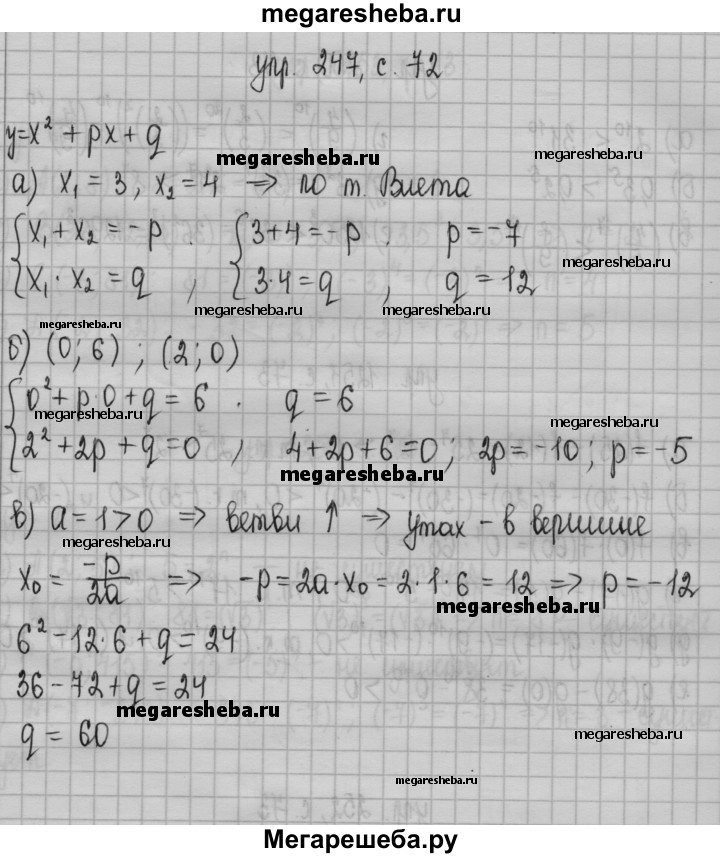 megaresheba.ru
упр. 247, с. 72
y=x² + px + q
megaresheba.ru
megaresheba.ru
а) x₁ = 3, x₂ = 4 ⇒ по т. Виета
{ x₁ + x₂ = -p . { 3+4 = -p . p = -7
megaresheba.ru
{ x₁ · x₂ = q , { 3·4 = q , q = 12
megaresheba.ru
megaresheba.ru
megaresheba.ru
б) (0; 6) ; (2; 0)
{ 0² + p·0 + q = 6 . q = 6
megaresheba.ru
megaresheba.ru
{ 2² + 2p + q = 0 , 4 + 2p + 6 = 0 ; 2p = -10 ; p = -5
megaresheba.ru
в) a = 1 > 0 ⇒ ветви ↑ ⇒ ymax - в вершине
megaresheba.ru
x₀ = -p/2a ⇒ -p = 2a · x₀ = 2 · 1 · 6 = 12 ⇒ p = -12
megaresheba.ru
6² - 12·6 + q = 24
36 - 72 + q = 24
megaresheba.ru
q = 60
megaresheba.ru
megaresheba.ru
Мегарешеба.ру